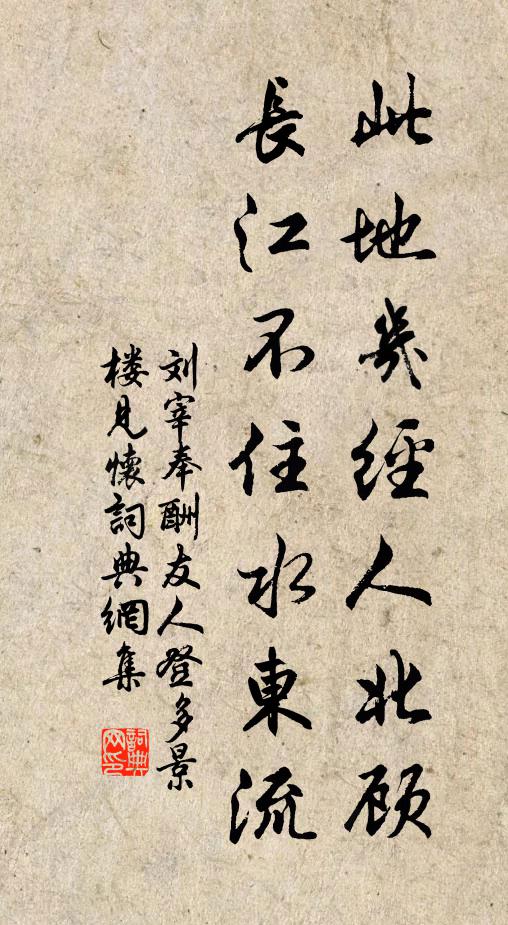 此地幾經人北顾
長江不住水東流
刘宰奉酬友人登多景
楼見懷詞典網集
詞典网印